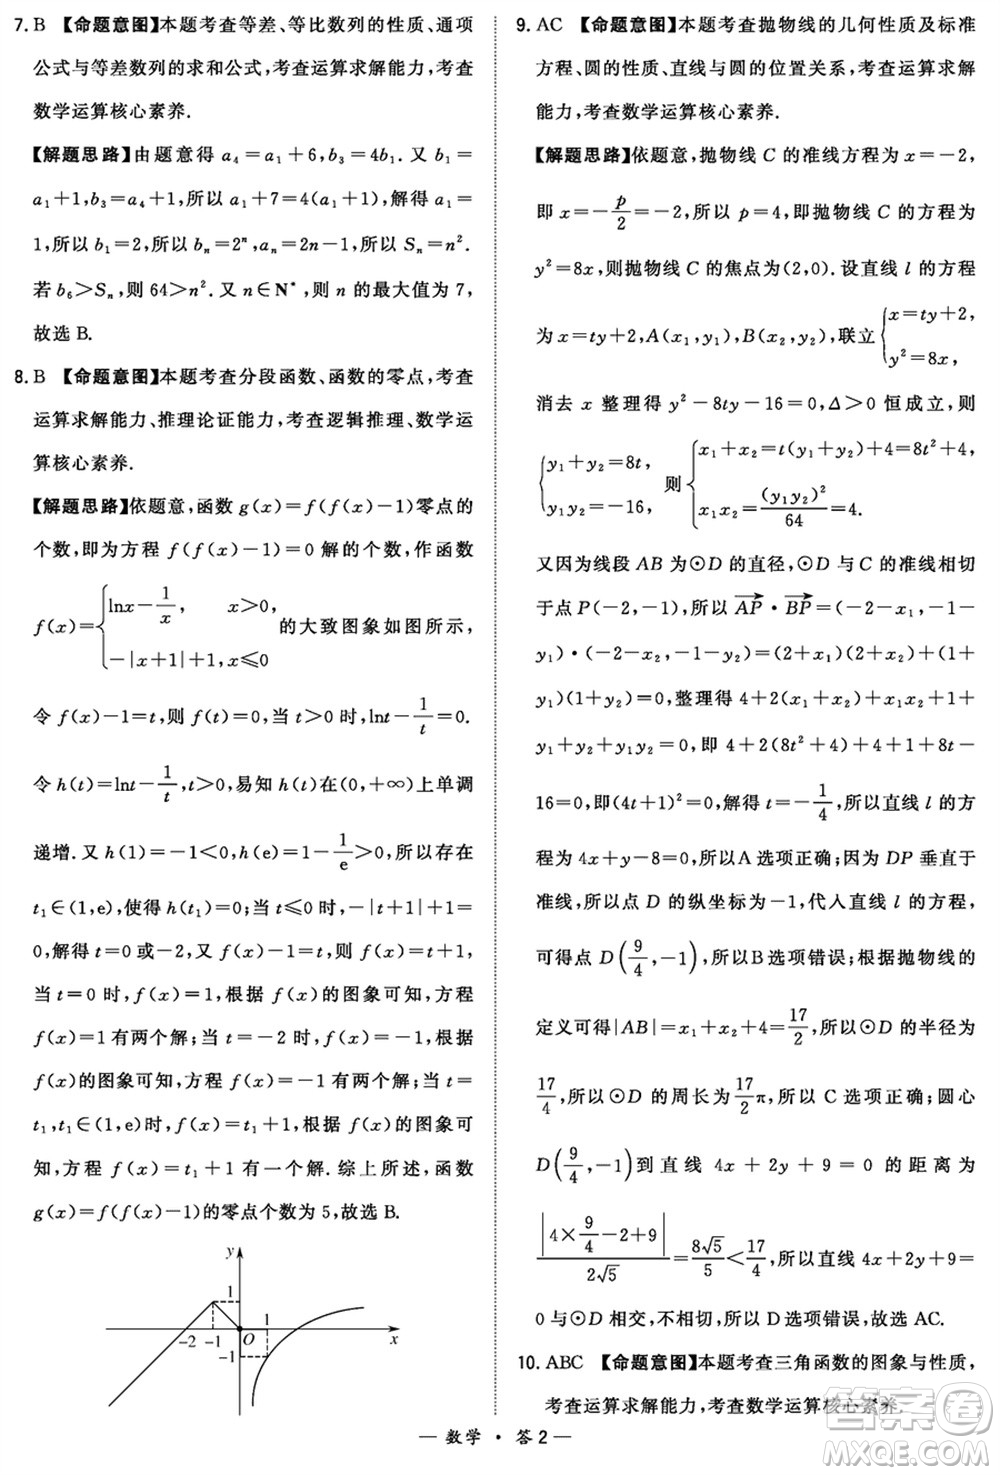 7. B 【命题意图】本题考查等差、等比数列的性质、通项
公式与等差数列的求和公式,考查运算求解能力,考查
数学运算核心素养.
【解题思路】由题意得 a₄=a₁+6,b₃=4b₁. 又 b₁=
a₁+1,b₃=a₄+1,所以 a₁+7=4(a₁+1),解得 a₁=
1,所以 b₁=2,所以 bₙ=2ⁿ,aₙ=2n-1,所以 Sₙ=n².
若 b₆>Sₙ,则 64>n². 又 n∈N*,则 n 的最大值为 7,
故选 B.
8. B 【命题意图】本题考查分段函数、函数的零点,考查
运算求解能力、推理论证能力,考查逻辑推理、数学运
算核心素养.
【解题思路】依题意,函数 g(x)=f(f(x)-1)零点的
个数,即为方程 f(f(x)-1)=0 解的个数,作函数
f(x)={lnx-1/x, x>0, -|x+1|+1,x≤0 的大致图象如图所示,
令 f(x)-1=t,则 f(t)=0,当 t>0 时,lnt-1/t=0.
令 h(t)=lnt-1/t,t>0,易知 h(t)在(0,+∞)上单调
递增. 又 h(1)=-1<0,h(e)=1-1/e>0,所以存在
t₁∈(1,e),使得 h(t₁)=0;当 t≤0 时,-|t+1|+1=
0,解得 t=0 或-2,又 f(x)-1=t,则 f(x)=t+1,
当 t=0 时,f(x)=1,根据 f(x)的图象可知,方程
f(x)=1 有两个解;当 t=-2 时,f(x)=-1,根据
f(x)的图象可知,方程 f(x)=-1 有两个解;当 t=
t₁,t₁∈(1,e)时,f(x)=t₁+1,根据 f(x)的图象可
知,方程 f(x)=t₁+1 有一个解. 综上所述,函数
g(x)=f(f(x)-1)的零点个数为 5,故选 B.
y
1
-2 -1 O 1 x
-1
9. AC 【命题意图】本题考查抛物线的几何性质及标准
方程、圆的性质、直线与圆的位置关系,考查运算求解
能力,考查数学运算核心素养.
【解题思路】依题意,抛物线 C 的准线方程为 x=-2,
即 x=-p/2=-2,所以 p=4,即抛物线 C 的方程为
y²=8x,则抛物线 C 的焦点为(2,0). 设直线 l 的方程
为 x=ty+2,A(x₁,y₁),B(x₂,y₂),联立{x=ty+2, y²=8x,
消去 x 整理得 y²-8ty-16=0,Δ>0 恒成立,则
{y₁+y₂=8t, y₁y₂=-16, 则{x₁+x₂=t(y₁+y₂)+4=8t²+4, x₁x₂=(y₁y₂)²/64=4.
又因为线段 AB 为⊙D 的直径,⊙D 与 C 的准线相切
于点 P(-2,-1),所以 AP→·BP→=(-2-x₁,-1-
y₁)·(-2-x₂,-1-y₂)=(2+x₁)(2+x₂)+(1+
y₁)(1+y₂)=0,整理得 4+2(x₁+x₂)+x₁x₂+1+
y₁+y₂+y₁y₂=0,即 4+2(8t²+4)+4+1+8t-
16=0,即(4t+1)²=0,解得 t=-1/4,所以直线 l 的方
程为 4x+y-8=0,所以A选项正确;因为 DP 垂直于
准线,所以点 D 的纵坐标为-1,代入直线 l 的方程,
可得点 D(9/4,-1),所以B选项错误;根据抛物线的
定义可得|AB|=x₁+x₂+4=17/2,所以⊙D 的半径为
17/4,所以⊙D 的周长为17/2π,所以 C 选项正确;圆心
D(9/4,-1)到直线 4x+2y+9=0 的距离为
|4×9/4-2+9|/2√5=8√5/5<17/4,所以直线 4x+2y+9=
0 与⊙D 相交,不相切,所以 D 选项错误,故选 AC.
10. ABC 【命题意图】本题考查三角函数的图象与性质,
考查运算求解能力,考查数学运算核心素养.
— 数学·答2 —
答案圈
MXQE.COM